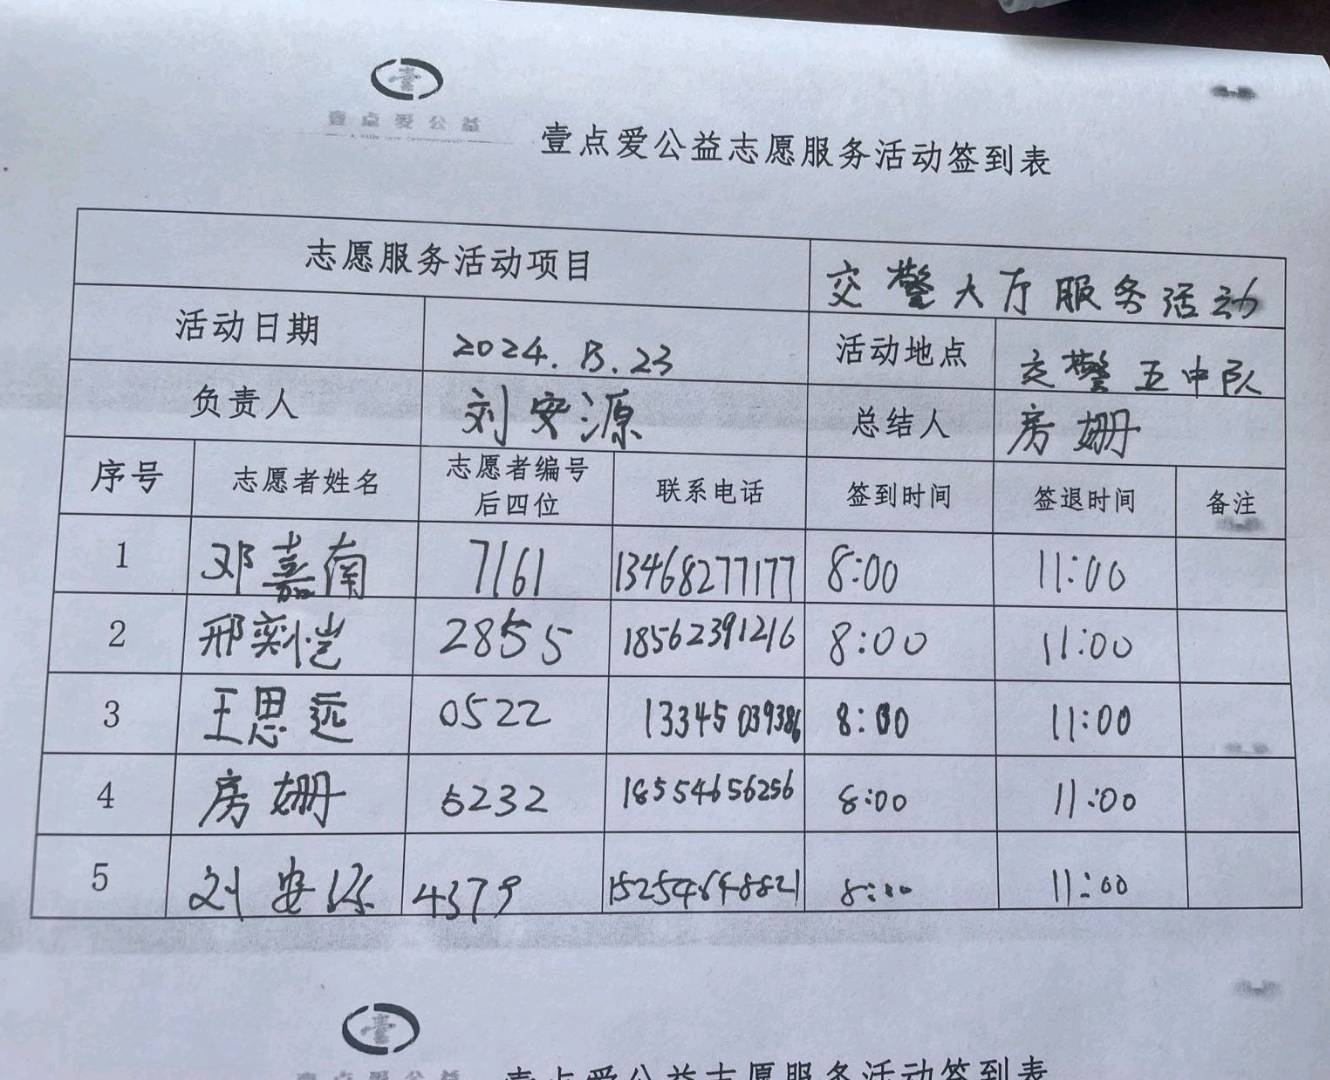 壹点爱公益
壹点爱公益志愿服务活动签到表
志愿服务活动项目 交警大厅服务活动
活动日期 2024. 13. 23 活动地点 交警五中队
负责人 刘安源 总结人 房姗
序号 志愿者姓名 志愿者编号后四位 联系电话 签到时间 签退时间 备注
1 邓嘉南 7161 13468277177 8:00 11:00
2 邢奕恺 2855 18562391216 8:00 11:00
3 王思远 0522 13345039386 8:00 11:00
4 房姗 5232 18554656256 8:00 11:00
5 刘安源 4379 15254648821 8:00 11:00
壹点爱公益
壹点爱公益志愿服务活动签到表